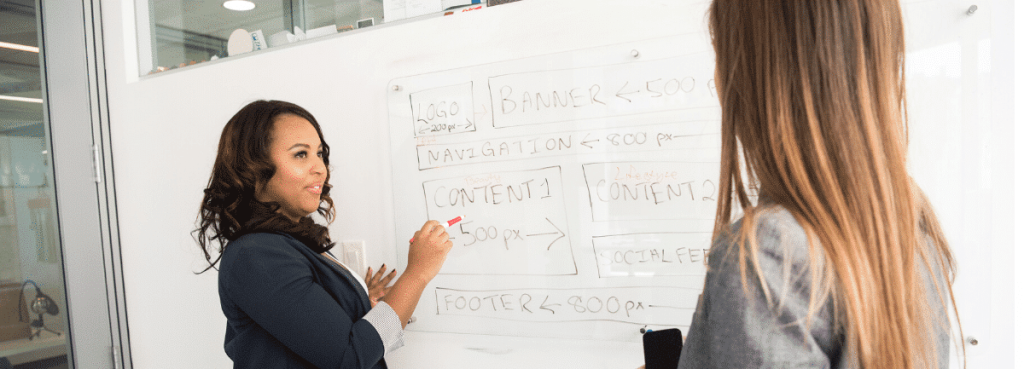 LOGO
←200px→
BANNER ← 500
NAVIGATION ← 800 px
CONTENT 1
500 px →
Lifestyle
CONTENT 2
SOCIAL FEE
FOOTER ← 800px